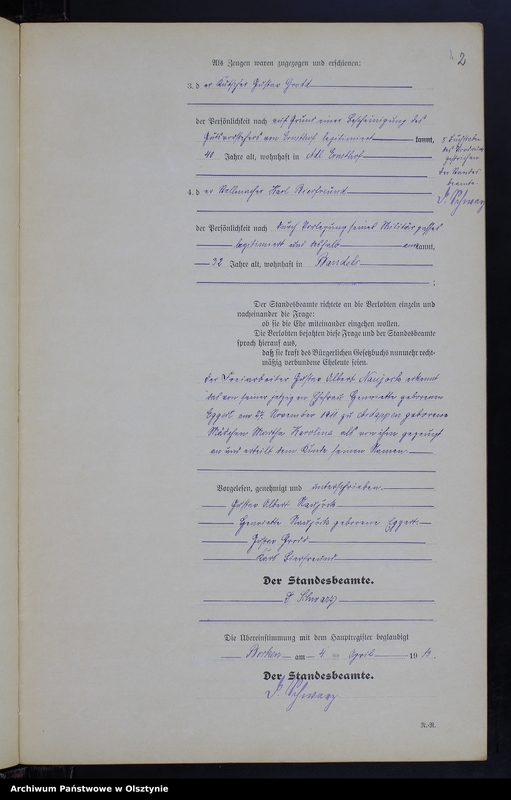 2
Als Zeugen waren zugezogen und erschienen:
3. d er Kutscher Gustav Grodd
der Persönlichkeit nach auf Grund einer Bescheinigung des
Gutsvorstehers von Ernsthof legitimiert kannt,
40 Jahre alt, wohnhaft in Adl. Ernsthof
des Vordrucks
gestrichen
Der Standes
beamte.
P. Schwarz
4. d er Stellmacher Karl Bierfreund
der Persönlichkeit nach durch Vorlegung seines Militärpasses
legitimiert und deshalb kannt,
32 Jahre alt, wohnhaft in Bandels
;
Der Standesbeamte richtete an die Verlobten einzeln und
nacheinander die Frage:
ob sie die Ehe miteinander eingehen wollen.
Die Verlobten bejahten diese Frage und der Standesbeamte
sprach hierauf aus,
daß sie kraft des Bürgerlichen Gesetzbuchs nunmehr recht-
mäßig verbundene Eheleute seien.
Der Freiarbeiter Gustav Albert Naujock erkennt
das von seiner jetzigen Ehefrau Henriette geborenen
Eggert am November 1911 zu geborene
Mädchen Martha Karoline als von ihm gezeugt
an und erteilt dem Kinde seinen Namen.
Vorgelesen, genehmigt und unterschrieben.
Gustav Albert Naujock
Henriette Naujock geborene Eggert.
Gustav Grodd
Karl Bierfreund
Der Standesbeamte.
P. Schwarz
Die Übereinstimmung mit dem Hauptregister beglaubigt
am 4 ten April 19
Der Standesbeamte.
P. Schwarz
R.-R.
Archiwum Państwowe w Olsztynie